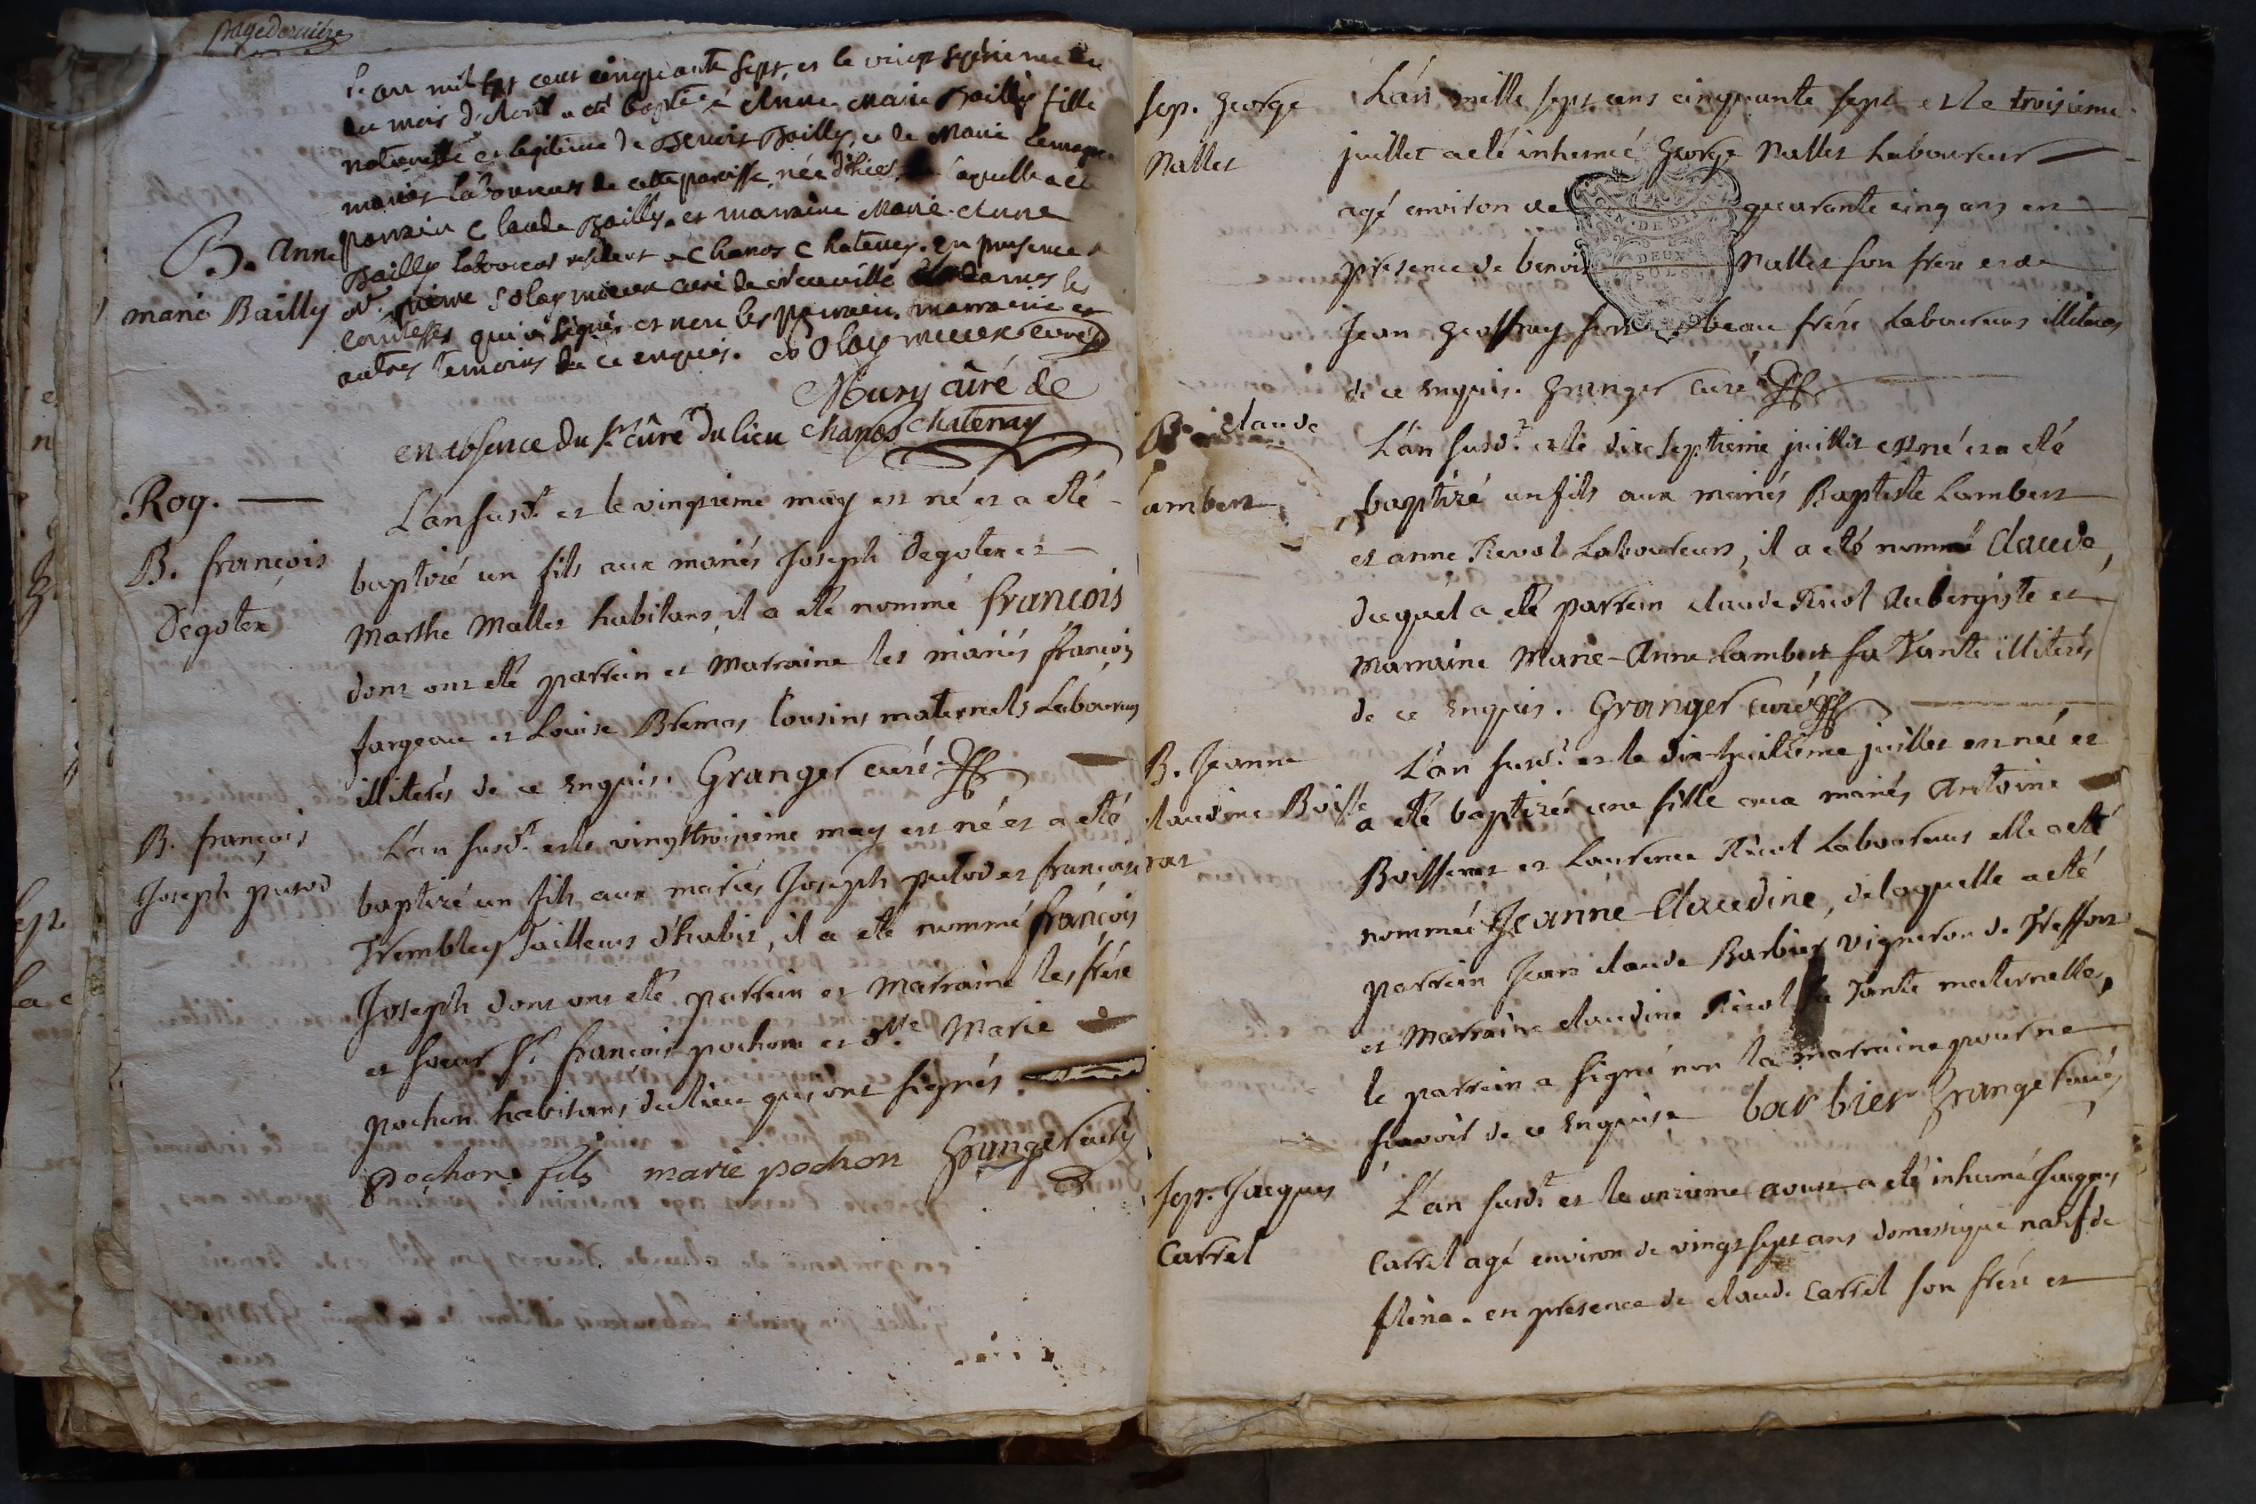 page derniere
L'an mil sept cent cinquante sept, et le vingt septieme du
du mois d'avril a été baptisé Anne Marie Bailly fille
naturelle et legitime de Benoit Bailly, et de Marie
mariés laboureurs de cette paroisse, née d'hier, à quelle a été
parrain Claude Bailly et marraine Marie Anne
B. Anne
marie Bailly
Bailly laboureurs resident a Chanos Chatenay. en presence de
pierre curé de
comtesses qui a signé et non les parrain, marraine et
autres temoins de ce enquis. curé
Mury curé de
en absence du sr curé du lieu Chanos Chatenay
Roy.
B. françois
Degoten
L'an susd. et le vingtieme may est né et a eté
baptizé un fils aux mariés Joseph Degoten et
Marthe Mallet habitans, il a eté nommé françois
dont ont eté parrein et Marraine les mariés françois
fargeau et Louise Bremas Cousins maternels Laboureurs
illiterés de ce enquis. Granger curé
B. françois
Joseph putod
L'an susd. et le vingttroisieme may est né et a eté
baptizé un fils aux mariés Joseph putod et françoise
Trembley Tailleurs d'habit, il a eté nommé françois
Joseph dont ont eté parrein et Marraine les frére
et soeur Sr. françois pochon et Dlle. Marie
pochon habitans du lieu qui ont signés.
pochon fils marie pochon Granger curé
sep. George
Nallet
L'an mille sept cens cinquante sept et le troisieme
juillet a eté inhumé George Nallet Laboureur
agé environ de quarante cinq ans en
presence de benoit Nallet son frere et de
Jean Geoffray son beau frére Laboureurs illiterés
de ce enquis. Granger curé
GEN. DE
DEUX
SOLS
B. claude
Lambert
L'an susd. et le dix septieme juillet est né et a eté
baptizé un fils aux mariés Baptiste Lambert
et anne Revol Laboureurs, il a eté nommé Claude,
duquel a eté parrein claude Ricol Aubergiste et
Marraine Marie-Anne Lambert sa Tante illiterés
de ce enquis. Granger curé
B. Jeanne
claudine Boisse
rat
L'an susd. et le dix-huitieme juillet est née et
a eté baptizée une fille aux mariés Antoine
Boisserat et Laurence Ricol Laboureurs elle a eté
nommée Jeanne-Claudine, de laquelle a eté
parrein Jean claude Barbier vigneron de Treffort
et Marraine claudine Ricol sa Tante maternelle,
le parrein a signé non la marraine pour ne
sçavoir de ce enquise barbier Granger curé
sep. Jacques
Carrel
L'an susd. et le onzieme aoust a eté inhumé Jacques
Carrel agé environ de vingt sept ans domestique natif de
en presence de claude Carrel son frére et